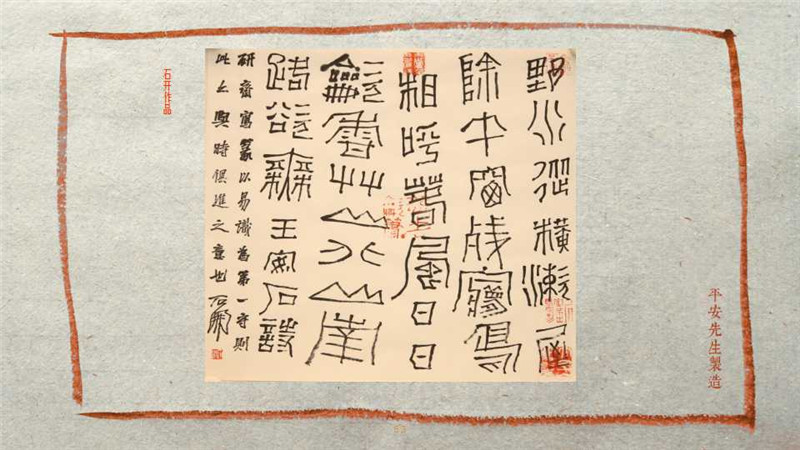 野水從橫漱屋
除午窗殘夢鳥
相呼春風日日
龡香艸山北山南
路欲無 王安石詩
研齋寫篆以易識為第一守則
此亦與時俱進之意也 石開
石开作品
平安先生製造